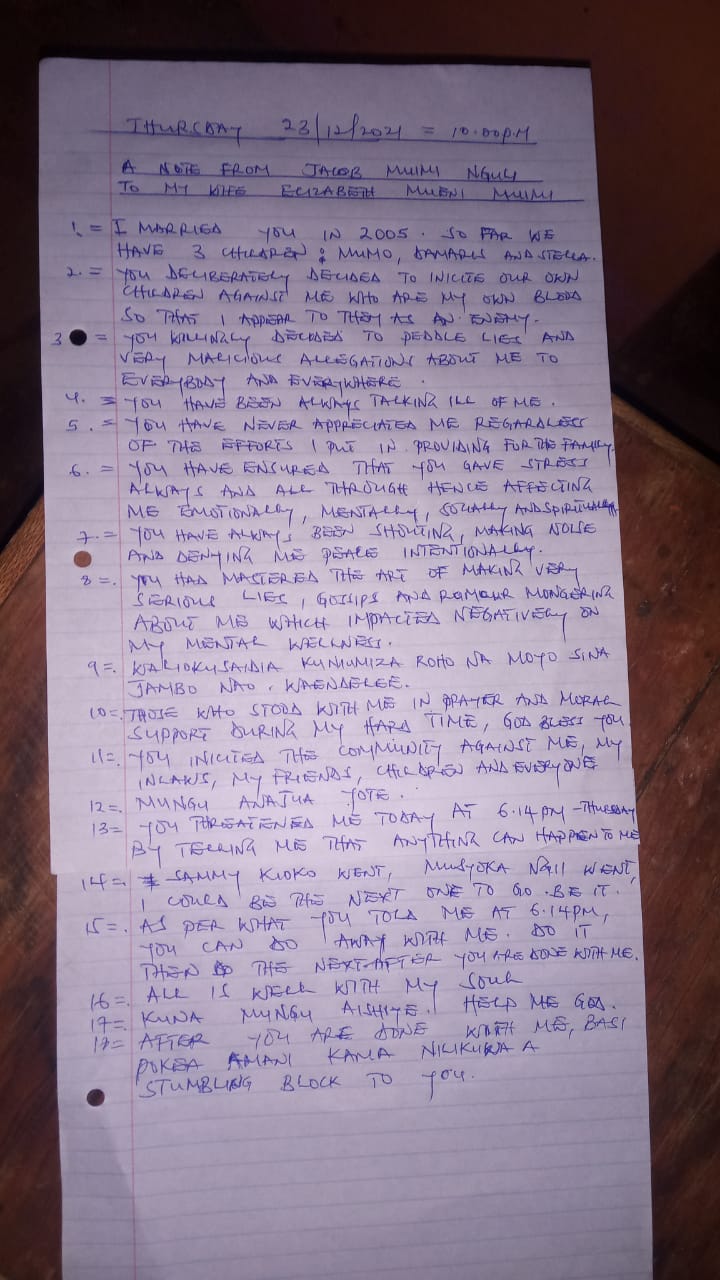 THURSDAY 23/12/2021 = 10.00PM
A NOTE FROM JACOB MUIMI NGULI
TO MY WIFE ELIZABETH MUENI MUIMI
1. = I MARRIED YOU IN 2005. SO FAR WE
HAVE 3 CHILDREN : MUMO, DAMARIS AND STELLA.
2. = YOU DELIBERATELY DECIDED TO INICITE OUR OWN
CHILDREN AGAINST ME WHO ARE MY OWN BLOOD
SO THAT I APPEAR TO THEM AS AN ENEMY.
3 = YOU WILLINGLY DECIDED TO PEDDLE LIES AND
VERY MALICIOUS ALLEGATIONS ABOUT ME TO
EVERYBODY AND EVERYWHERE.
4. = YOU HAVE BEEN ALWAYS TALKING ILL OF ME.
5. = YOU HAVE NEVER APPRECIATED ME REGARDLESS
OF THE EFFORTS I PUT IN PROVIDING FOR THE FAMILY.
6. = YOU HAVE ENSURED THAT YOU GAVE STRESS
ALWAYS AND ALL THROUGH HENCE AFFECTING
ME EMOTIONALLY, MENTALLY, SOCIALLY AND SPIRITUALLY
7. = YOU HAVE ALWAYS BEEN SHOUTING, MAKING NOISE
AND DENYING ME PEACE INTENTIONALLY.
8 =. YOU HAD MASTERED THE ART OF MAKING VERY
SERIOUS LIES, GOSSIPS AND RUMOUR MONGERING
ABOUT ME WHICH IMPACTED NEGATIVELY ON
MY MENTAL WELLNESS.
9 =. WALIOKUSAIDIA KUNIUMIZA ROHO NA MOYO SINA
JAMBO NAO. WAENDELEE.
10 =. THOSE WHO STOOD WITH ME IN PRAYER AND MORAL
SUPPORT DURING MY HARD TIME, GOD BLESS YOU
11 =. YOU INICITED THE COMMUNITY AGAINST ME, MY
INLAWS, MY FRIENDS, CHILDREN AND EVERYONE
12 =. MUNGU ANAJUA YOTE.
13 = YOU THREATENED ME TODAY AT 6.14 PM - THURSDAY
BY TELLING ME THAT ANYTHING CAN HAPPEN TO ME
14 =. SAMMY KIOKO WENT, MUSYOKA NGII WENT,
I COULD BE THE NEXT ONE TO GO. BE IT.
15 =. AS PER WHAT YOU TOLD ME AT 6.14PM,
YOU CAN DO AWAY WITH ME. DO IT
THEN DO THE NEXT AFTER YOU ARE DONE WITH ME.
16 =. ALL IS WELL WITH MY SOUL
17 =. KUNA MUNGU AISHIYE. HELP ME GOD.
18 = AFTER YOU ARE DONE WITH ME, BASI
POKEA AMANI KAMA NILIKUWA A
STUMBLING BLOCK TO YOU.